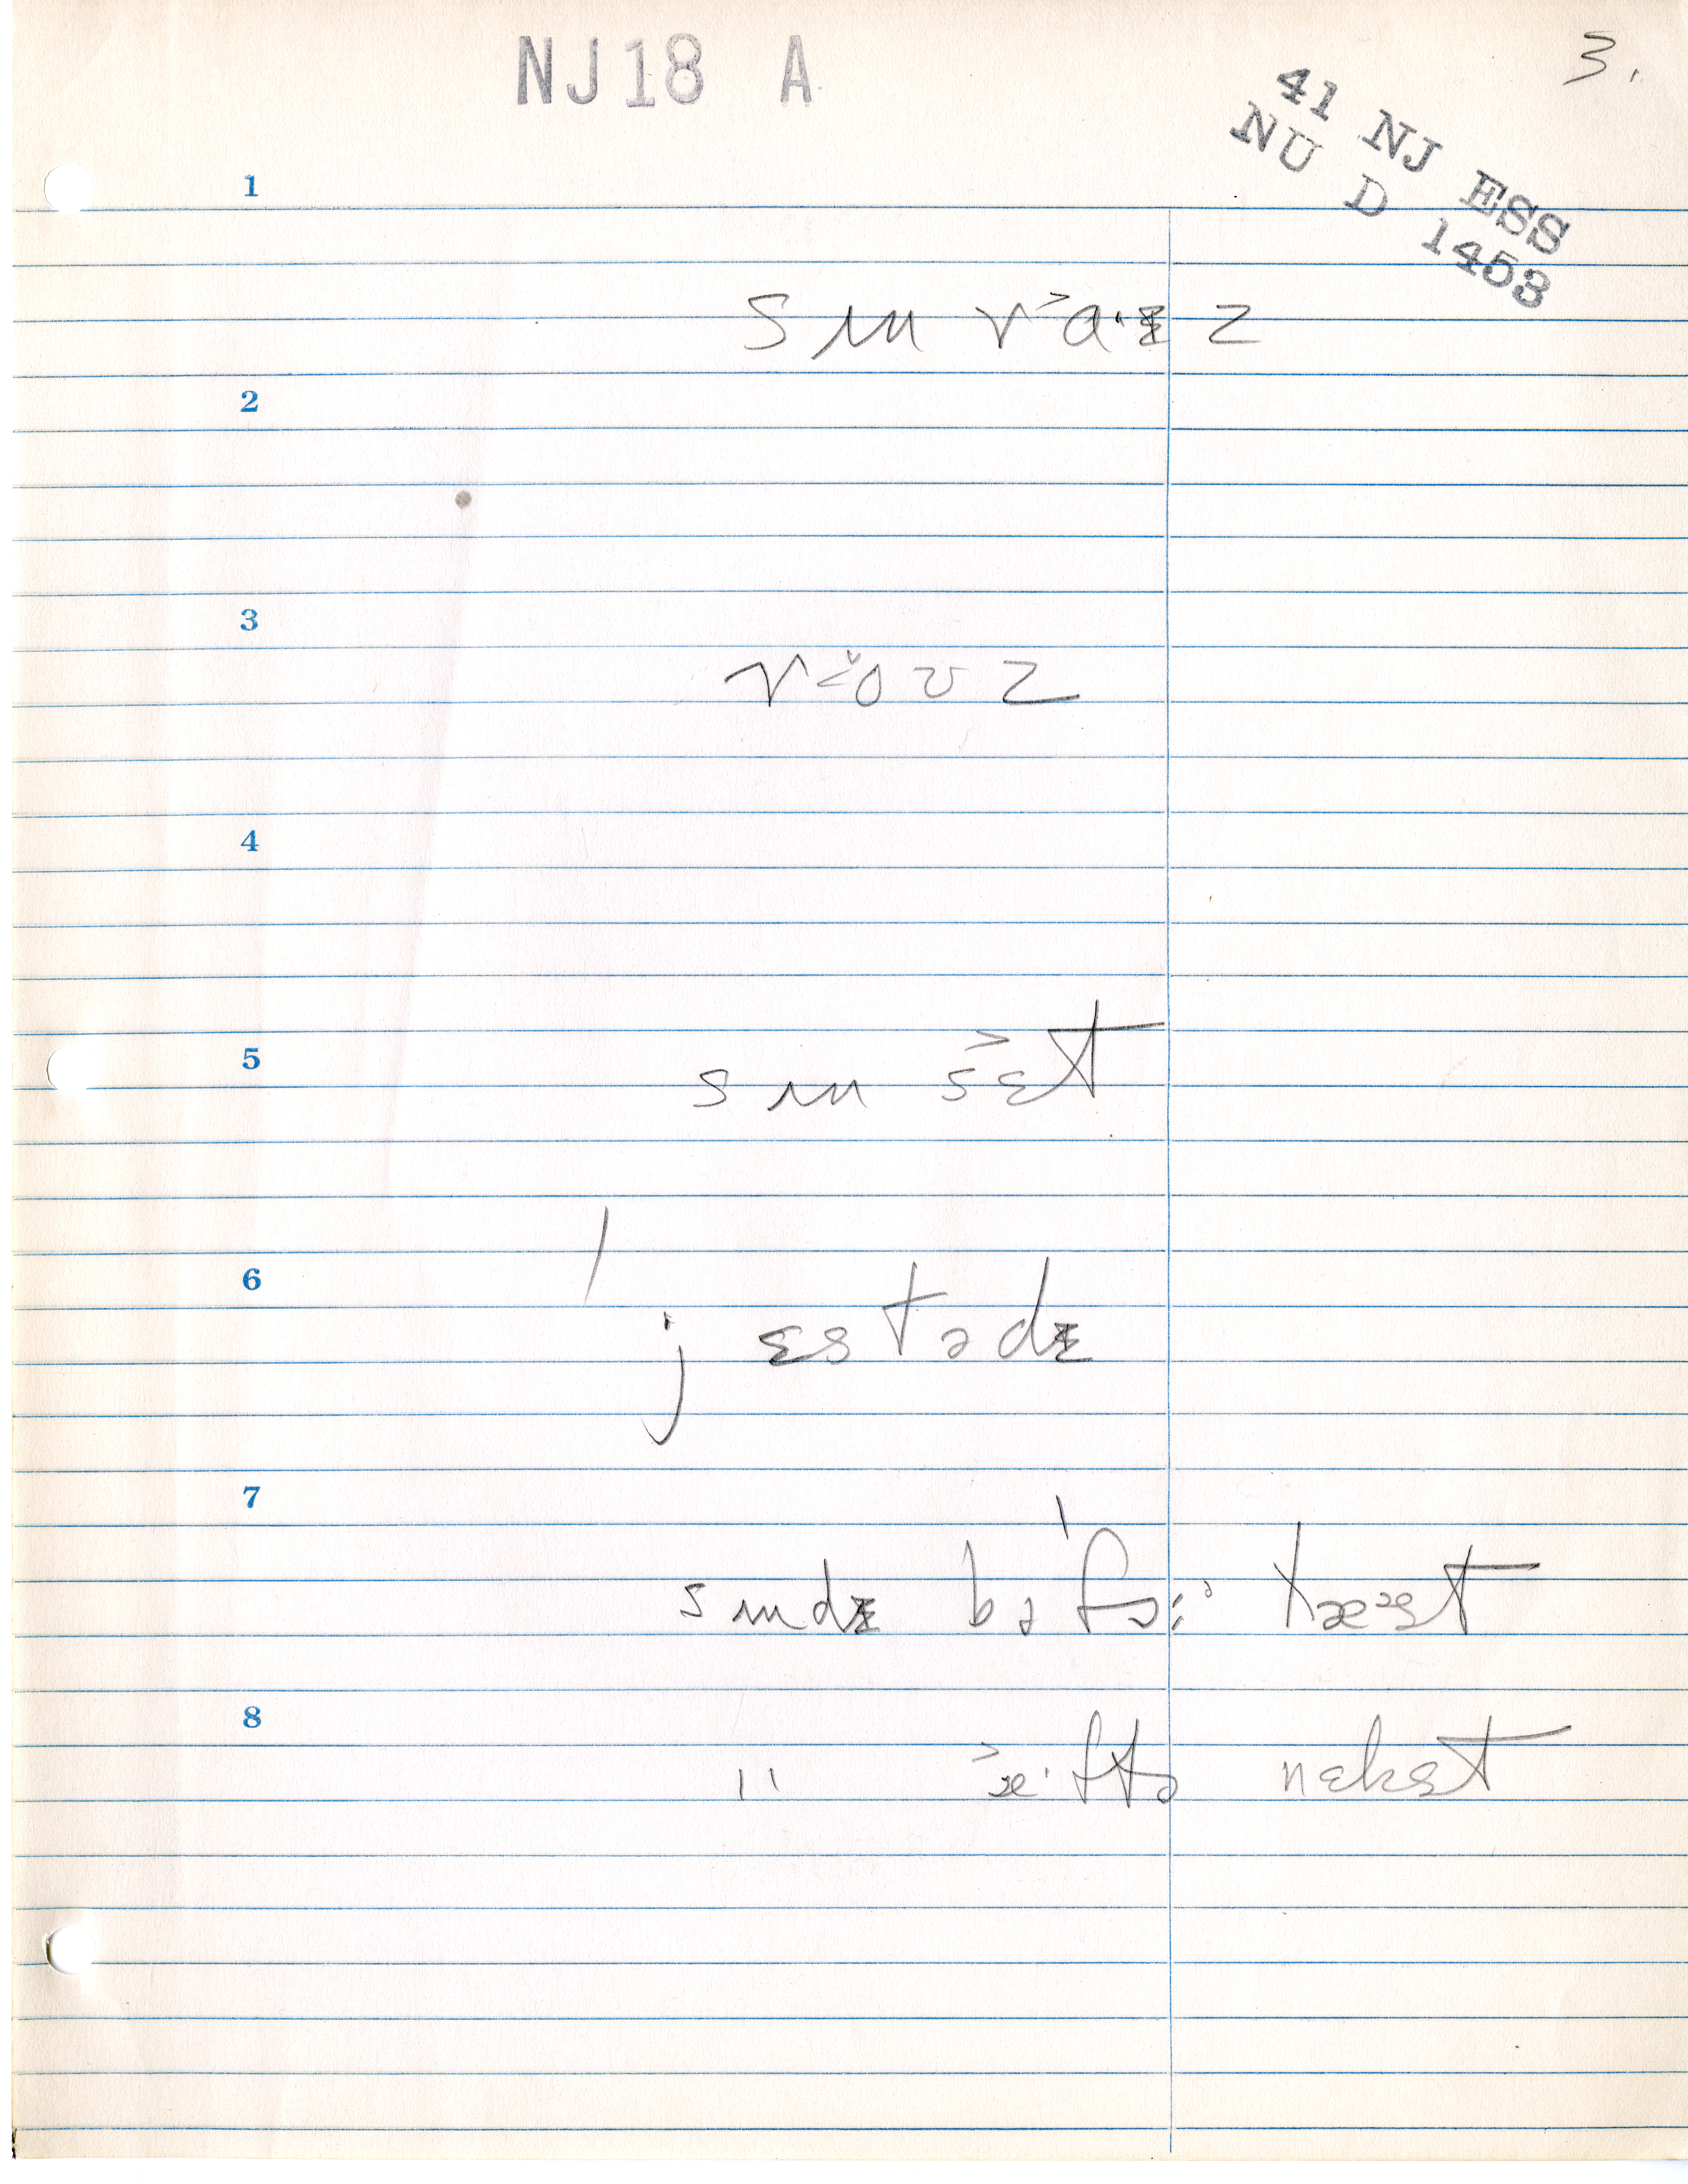 NJ18 A
3.
41 NJ ESS
NU D 1453
1
sʌn r˃a·ɪz
2
3
roʊz
4
5
sʌn sɛt
6
jɛstədɪ
7
sʌndɪ bəfɔ:ə læst
8
" æ·ftə nɛkst